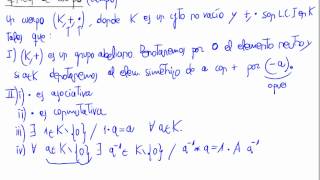 Un cuerpo (K,+,·), donde K es un cjto no vacío y +, · son L.C.I en K
tales que:
I) (K,+) es un grupo abeliano. Denotaremos por 0 el elemento neutro y
si a∈K denotaremos al elem. simétrico de a con + por (-a)
opuesto
II) i) · es asociativa
ii) · es conmutativa
iii) ∃ 1∈K\{0} / 1·a=a ∀a∈K.
iv) ∀ a∈K\{0} ∃ a⁻¹∈K\{0} / a⁻¹·a=1